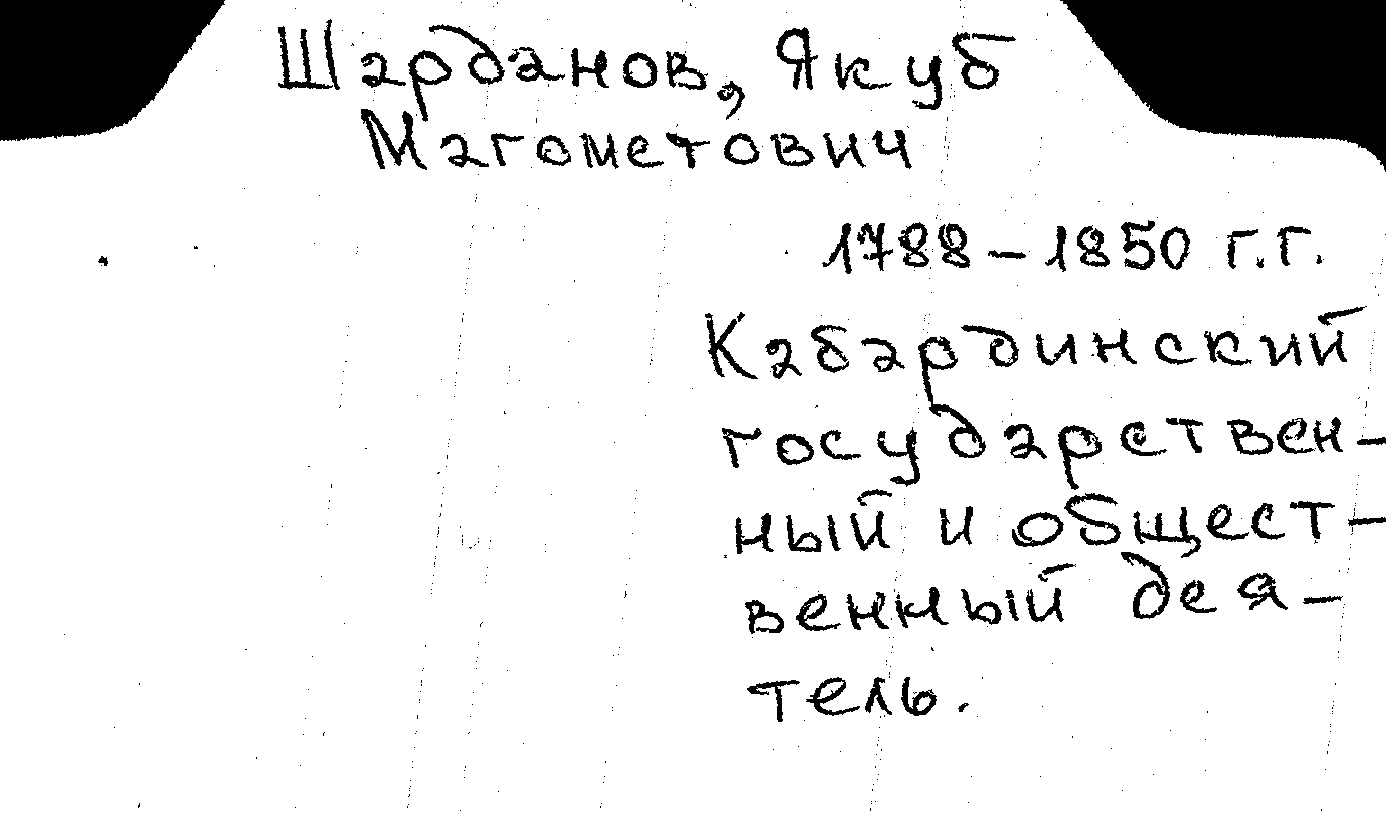 Шарданов, Якуб
Магометович
1788 – 1850 г.г.
Кабардинский
государствен-
ный и общест-
венный дея-
тель.